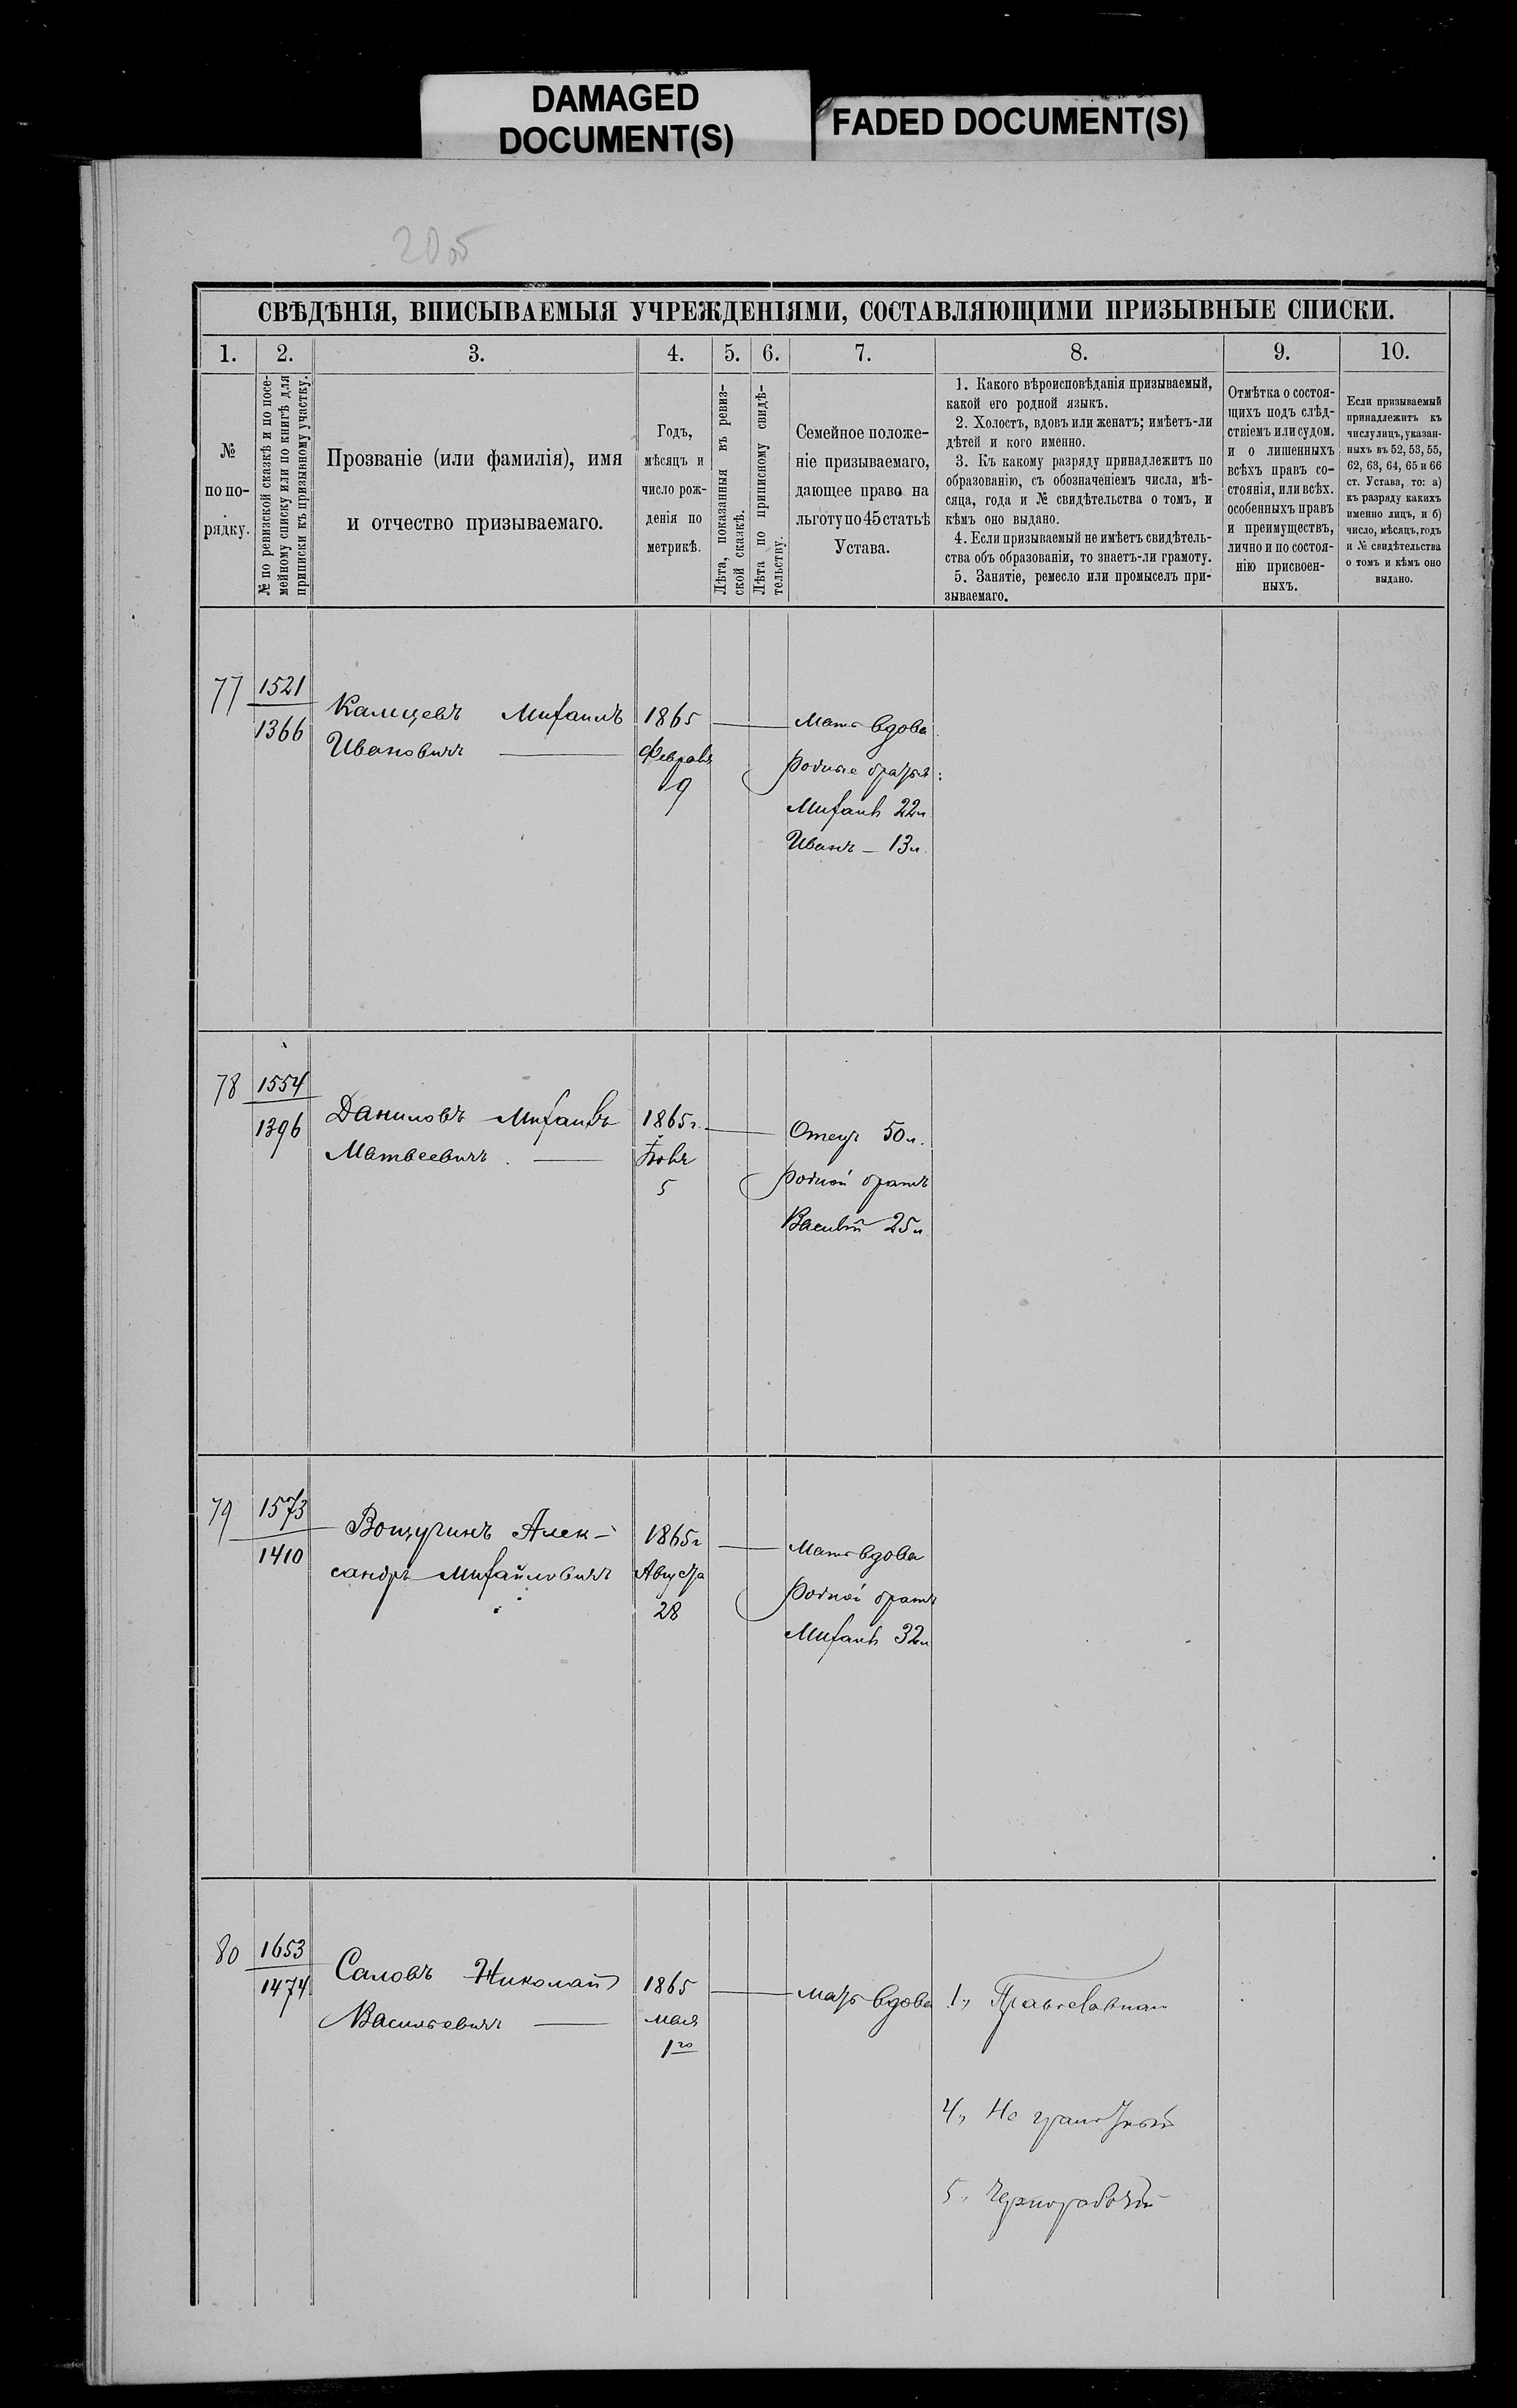 DAMAGED
DOCUMENT(S)
FADED DOCUMENT(S)
20 об
СВѢДѢНІЯ, ВПИСЫВАЕМЫЯ УЧРЕЖДЕНІЯМИ, СОСТАВЛЯЮЩИМИ ПРИЗЫВНЫЕ СПИСКИ.
1. 2. 3. 4. 5. 6. 7. 8. 9. 10.
№
по по-
рядку.
№ по ревизской сказкѣ и по посе-
мейному списку или по книгѣ для
приписки къ призывному участку.
Прозваніе (или фамилія), имя
и отчество призываемаго.
Годъ,
мѣсяцъ и
число рож-
денія по
метрикѣ.
Лѣта, показанныя въ ревиз-
ской сказкѣ.
Лѣта по приписному свидѣ-
тельству.
Семейное положе-
ніе призываемаго,
дающее право на
льготу по 45 статьѣ
Устава.
1. Какого вѣроисповѣданія призываемый,
какой его родной языкъ.
2. Холостъ, вдовъ или женатъ; имѣетъ-ли
дѣтей и кого именно.
3. Къ какому разряду принадлежитъ по
образованію, съ обозначеніемъ числа, мѣ-
сяца, года и № свидѣтельства о томъ, и
кѣмъ оно выдано.
4. Если призываемый не имѣетъ свидѣтель-
ства объ образованіи, то знаетъ-ли грамоту.
5. Занятіе, ремесло или промыселъ при-
зываемаго.
Отмѣтка о состоя-
щихъ подъ слѣд-
ствіемъ или судом.
и о лишенныхъ
всѣхъ правъ со-
стоянія, или всѣх.
особенныхъ правъ
и преимуществъ,
лично и по состоя-
нію присвоен-
ныхъ.
Если призываемый
принадлежитъ къ
числу лицъ, указан-
ныхъ въ 52, 53, 55,
62, 63, 64, 65 и 66
ст. Устава, то: а)
къ разряду какихъ
именно лицъ, и б)
число, мѣсяцъ, годъ
и № свидѣтельства
о томъ и кѣмъ оно
выдано.
77
1521
1366
Михаилъ
Ивановичъ
1865
Февраля
9
Мать вдова
родные братья:
Михаилъ 22 л
Иванъ – 13 л.
78
1554
1396
Даниловъ Михаилъ
Матвеевичъ
1865 г.
5
Отецъ 50 л.
родной братъ
Василій 25 л.
79
1573
1410
Вощугинъ Алек-
сандръ Михайловичъ
1865 г
Августа
28
Мать вдова
родной братъ
Михаилъ 32 л
80
1653
1474
Саловъ Николай
Васильевичъ
1865
мая
1го
мать вдова
1, Православнаго
4, Не грамотный
5, Чернорабочій